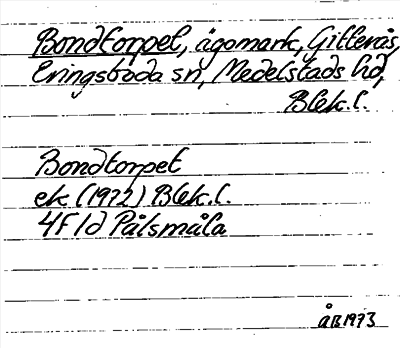 Bondtorpet, ägomark, Gifterås,
Eringsboda sn, Medelstads hd,
Blek.l.
Bondtorpet
ek (1972) Blek.l.
4F 1d Pålsmåla
ÅB 1973